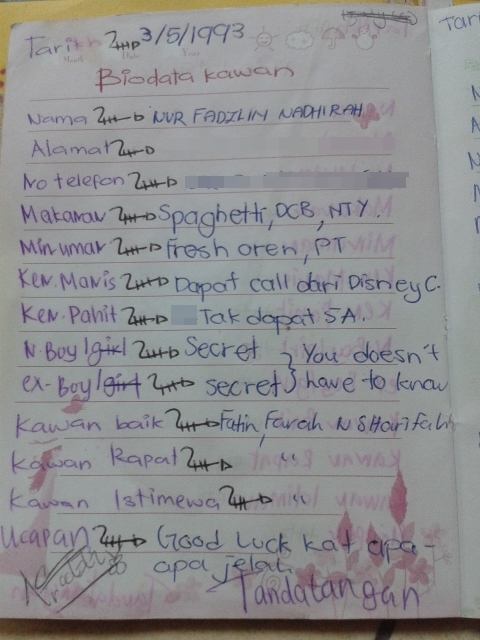 Tarikh 3/5/1993
Biodata kawan
Nama NUR FADZLIN NADHIRAH
Alamat
No telefon
Makanan Spaghetti, DCB, NTY
Minuman Fresh oren, PT
Ken. Manis Dapat call dari Disney C.
Ken. Pahit Tak dapat 5A.
N. Boy/girl Secret } You doesn't
ex-Boy/girl secret } have to know
Kawan baik Fatin, Farah N Sharifah
Kawan Rapat "
Kawan Istimewa "
Ucapan Good Luck kat apa-
apa jelah
Tandatangan